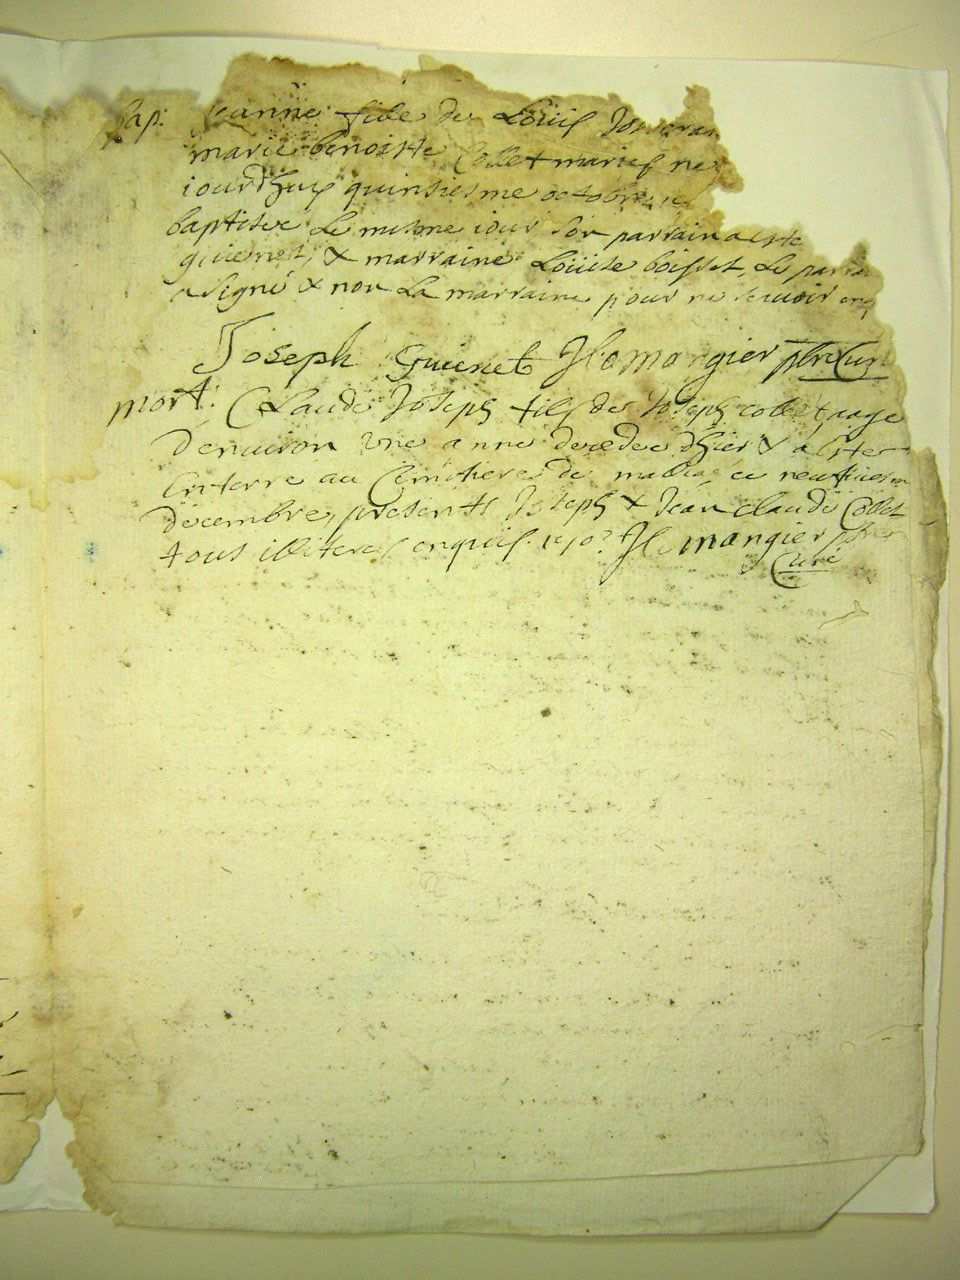 bap. Jeanne fille de Loüis
marie benoiste Collet mariés ne
iourdhuy quinsiesme octobre
baptisee Le mesme iour son parrain a este
guienet, & marraine Loüise boisset, Le parrain
a signé & non La marraine pour ne scavoir enq
Joseph Guienet JLamangier pbre Curé
mort. Claude Joseph fils de Joseph collet aage
denuiron vne anne decedee dhier & a este
Enterre au Cemitiere de ce neufuiesme
decembre, presents Joseph & Jean claude Collet
tous illiteres enquis. JLamangier pbre
Curé